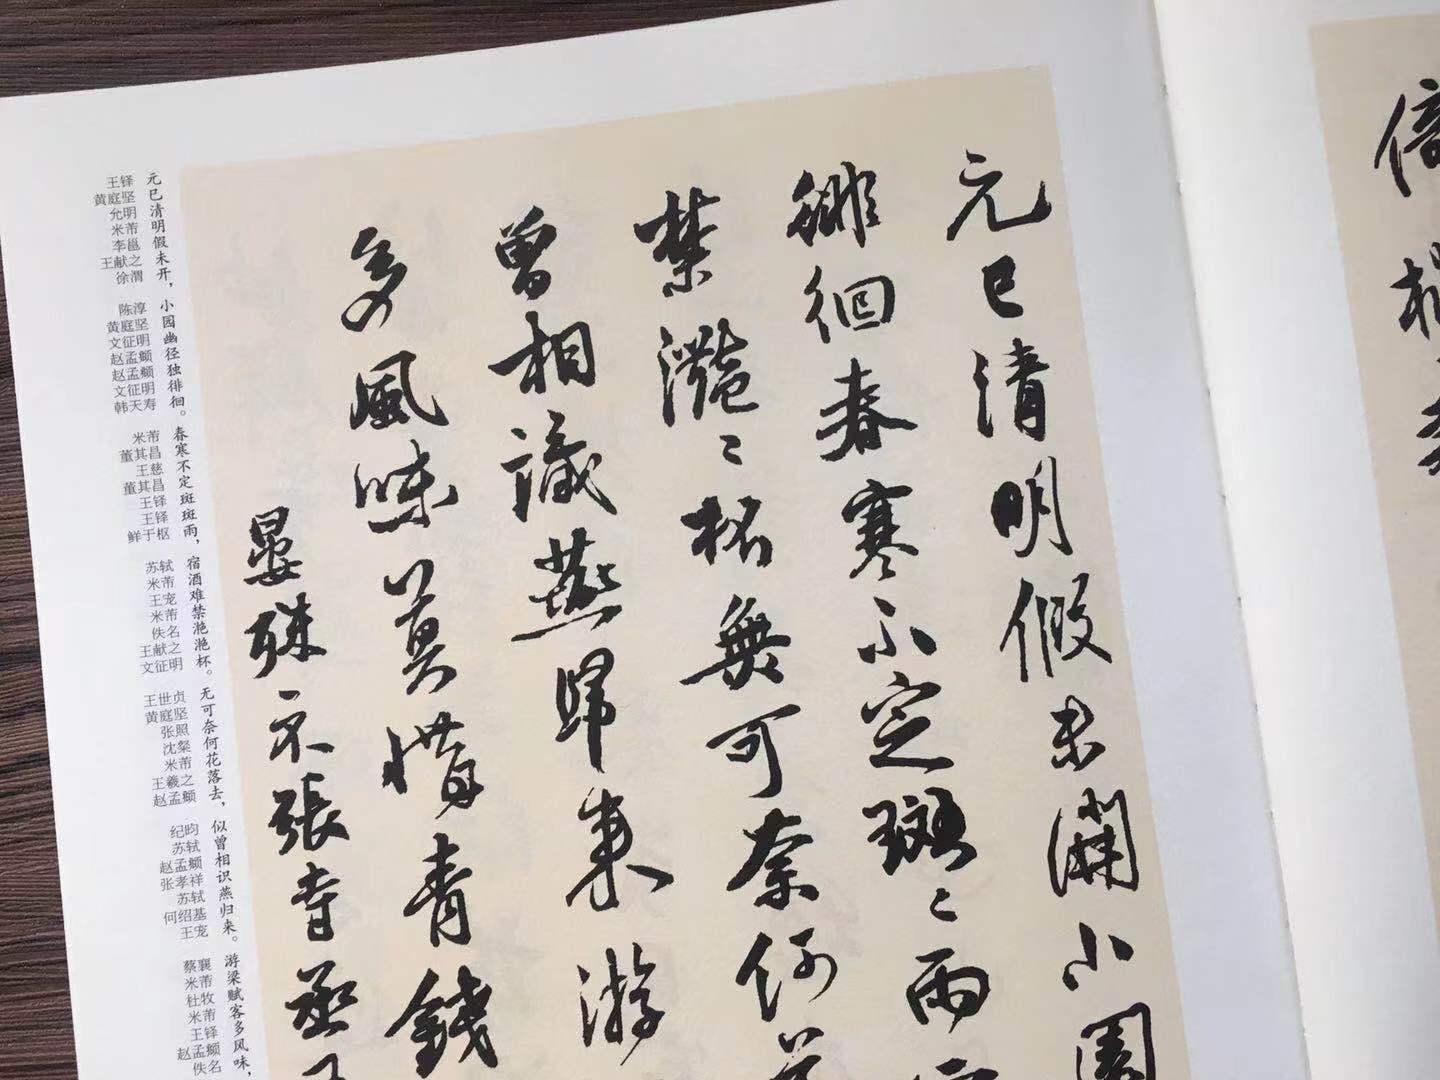 元巳清明假未開小園
徘徊春寒不定斑〻雨
禁灔〻杯無可奈何花
曾相識燕歸來游
多風味莫惜青錢
晏殊示張寺丞王
元巳清明假未开，小园幽径独徘徊。春寒不定斑斑雨，宿酒难禁滟滟杯。无可奈何花落去，似曾相识燕归来。游梁赋客多风味，
王铎
黄庭坚
允明
米芾
李邕
王献之
徐渭
陈淳
黄庭坚
文征明
赵孟頫
赵孟頫
文征明
韩天寿
米芾
董其昌
王慈
董其昌
王铎
王铎
鲜于枢
苏轼
米芾
王宠
米芾
佚名
王献之
文征明
王世贞
黄庭坚
张照
沈粲
米芾
王羲之
赵孟頫
纪昀
苏轼
赵孟頫
张孝祥
苏轼
何绍基
王宠
蔡襄
米芾
杜牧
米芾
王铎
赵孟頫
佚名